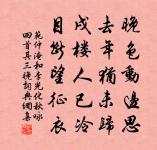 晚色動邊思
去年猶未歸
戍樓人已冷
目斷望征衣
范仲淹和李光化秋詠
四首其三晚詞典網集